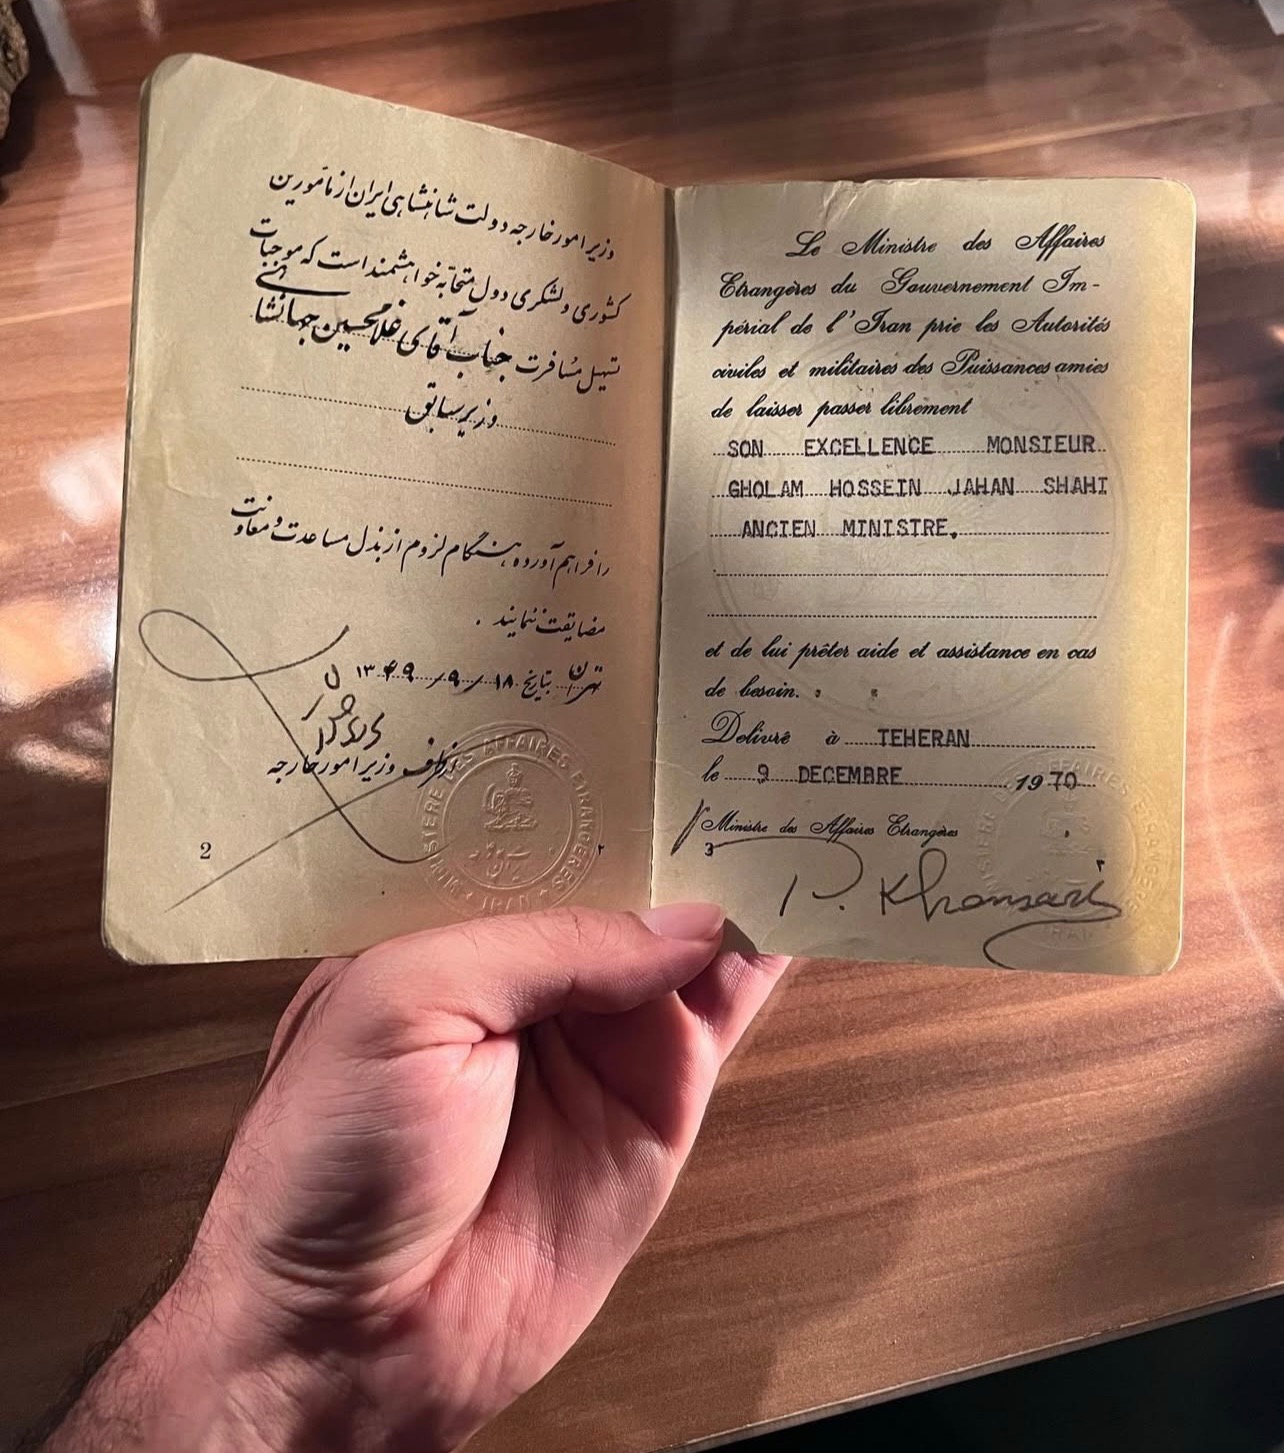 وزیر امور خارجه دولت شاهنشاهی ایران از مأمورین
کشوری و لشکری دول متحابّه خواهشمند است که موجبات
تسهیل مسافرت جناب آقای غلامحسین جهانشاهی
وزیر سابق
را فراهم آورده هنگام لزوم از بذل مساعدت و معاونت
مضایقت ننمایند .
تهران بتاریخ ۱۸ / ۹ / ۱۳۴۹
از طرف وزیر امور خارجه
MINISTERE DES AFFAIRES ETRANGERES
IRAN
2
۲
Le Ministre des Affaires
Etrangères du Gouvernement Im-
périal de l'Iran prie les Autorités
civiles et militaires des Puissances amies
de laisser passer librement
SON EXCELLENCE MONSIEUR
GHOLAM HOSSEIN JAHAN SHAHI
ANCIEN MINISTRE.
et de lui prêter aide et assistance en cas
de besoin.
Delivré à TEHERAN
le 9 DECEMBRE 1970
Ministre des Affaires Etrangères
3
۳
P. Khansari